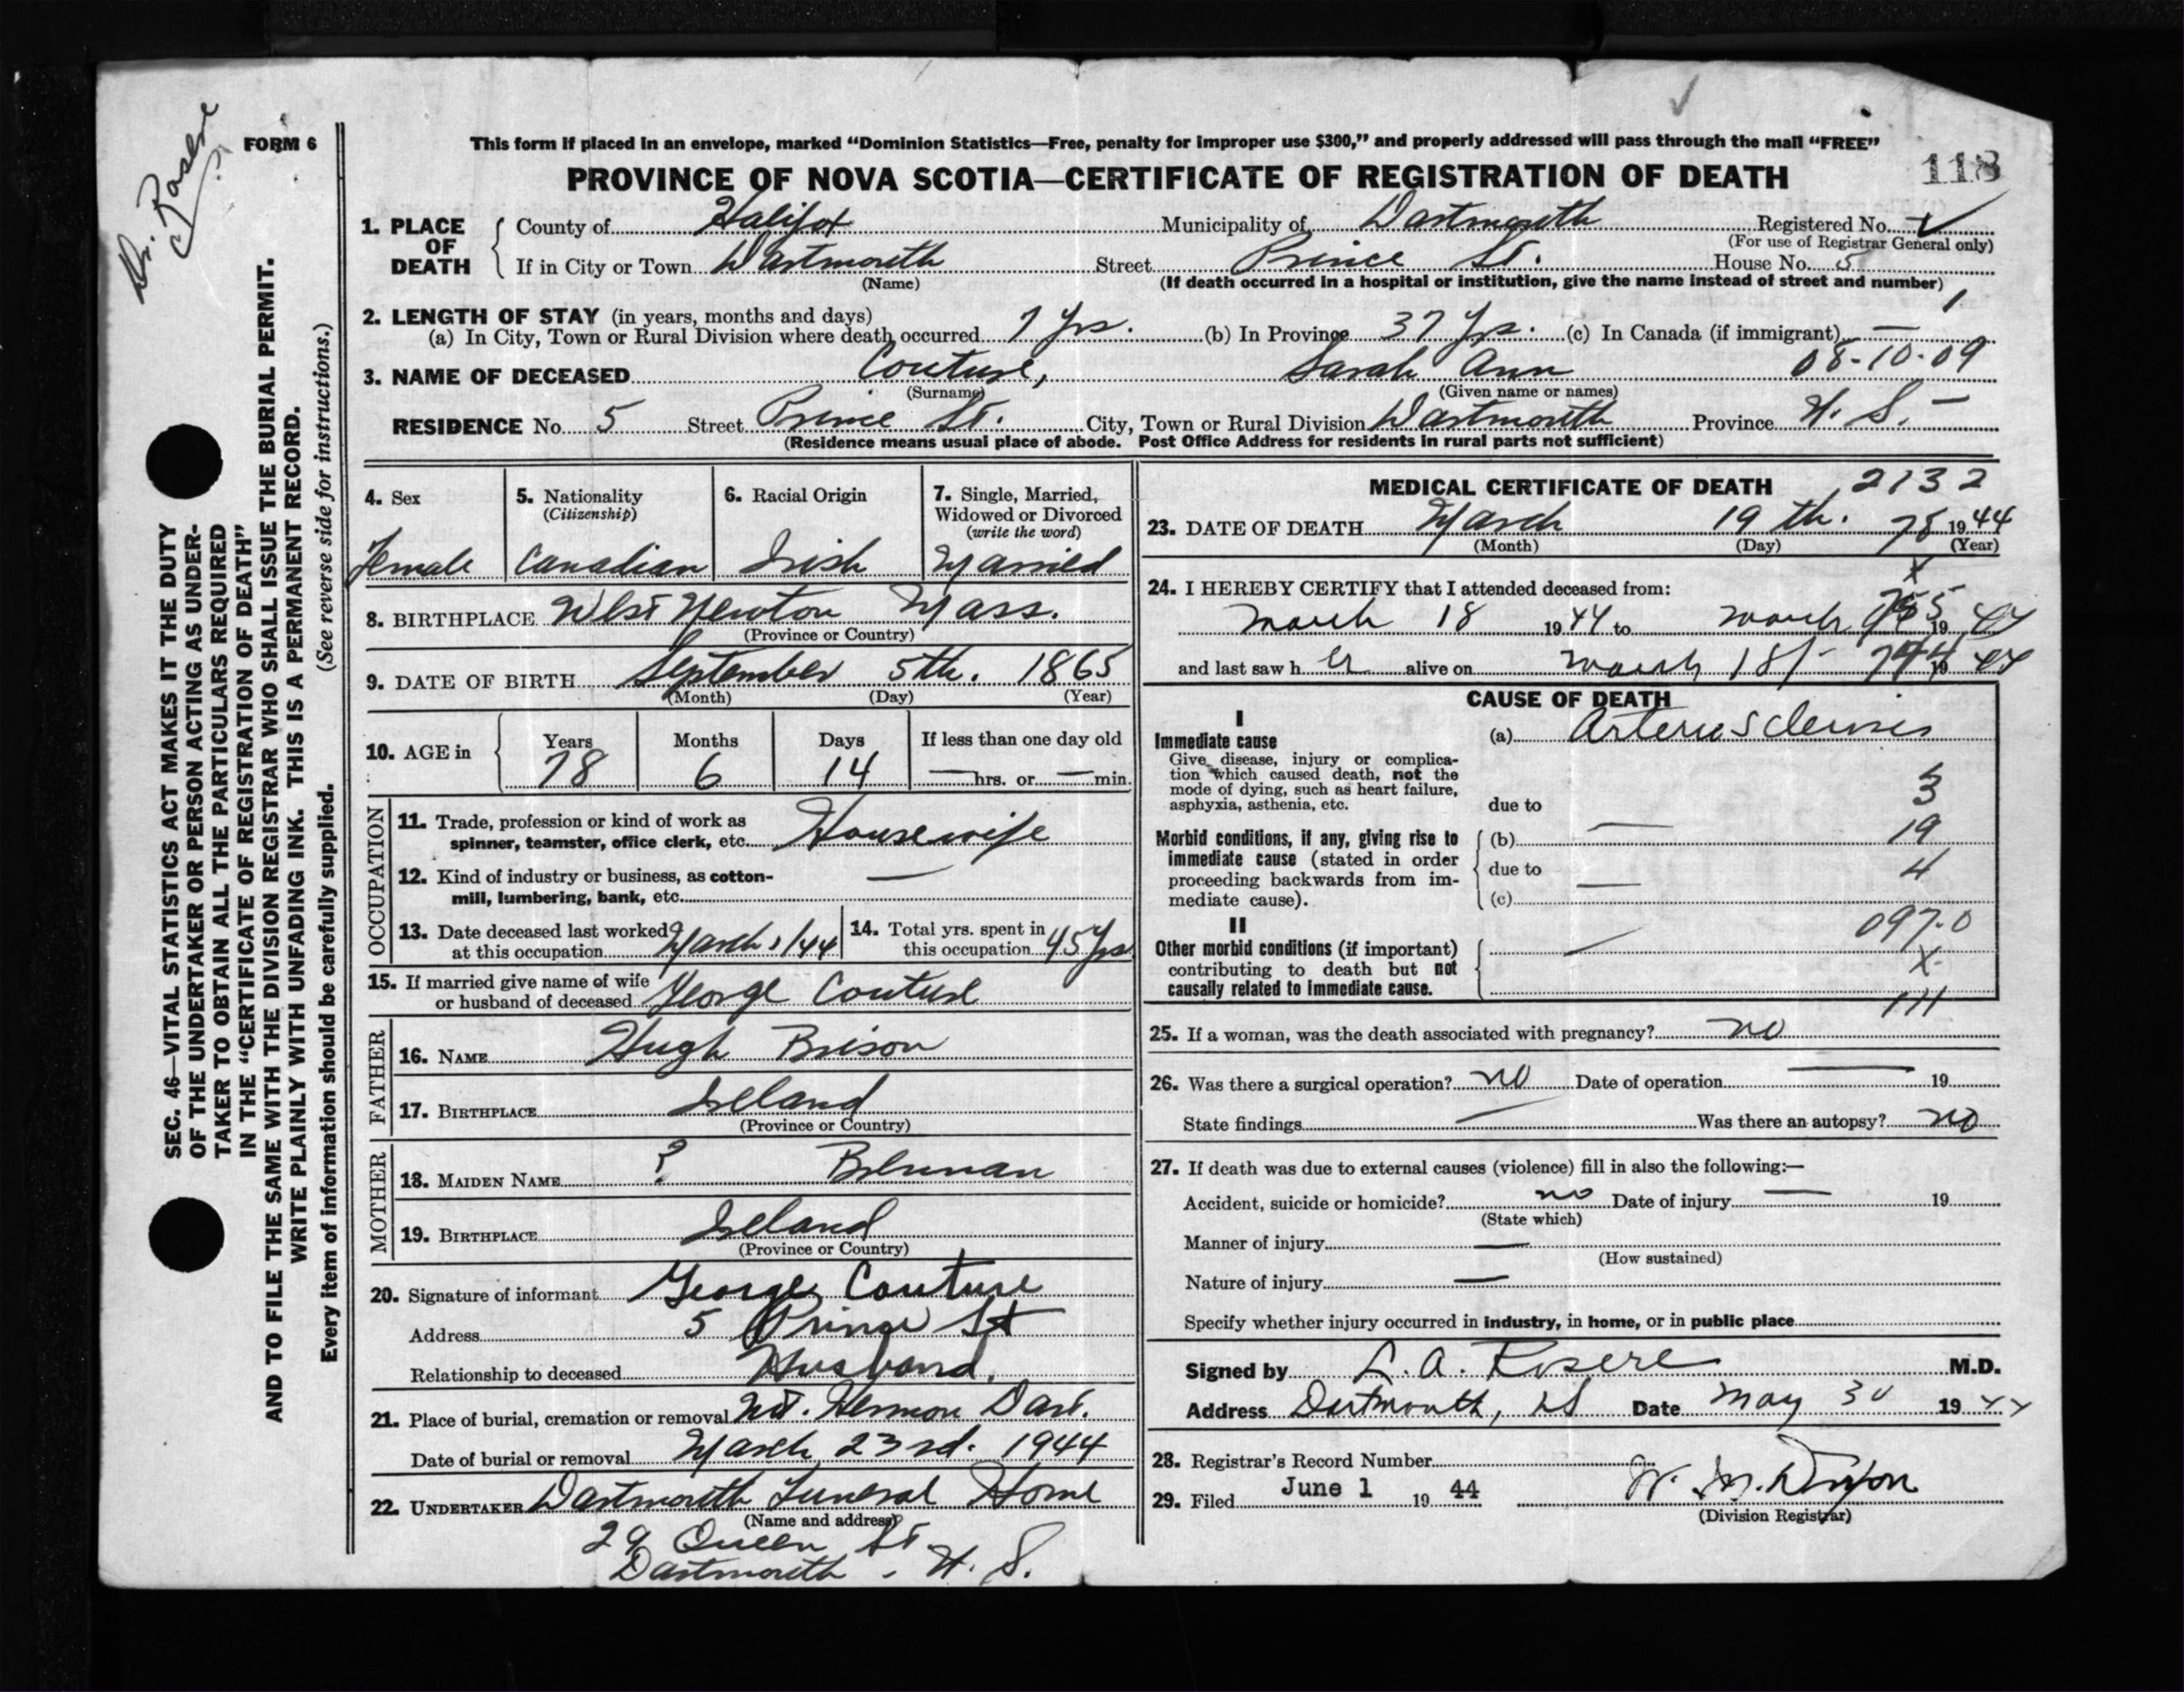 Dr. Rosere
FORM 6
This form if placed in an envelope, marked “Dominion Statistics—Free, penalty for improper use $300,” and properly addressed will pass through the mail “FREE”
PROVINCE OF NOVA SCOTIA—CERTIFICATE OF REGISTRATION OF DEATH
118
1. PLACE OF DEATH
County of Halifax Municipality of Dartmouth Registered No.
(For use of Registrar General only)
If in City or Town Dartmouth Street Prince St. House No. 5
(Name) (If death occurred in a hospital or institution, give the name instead of street and number)
2. LENGTH OF STAY (in years, months and days)
(a) In City, Town or Rural Division where death occurred 7 yrs. (b) In Province 37 yrs. (c) In Canada (if immigrant) —
3. NAME OF DECEASED Couture, Sarah Ann 08-10-09
(Surname) (Given name or names)
RESIDENCE No. 5 Street Prince St. City, Town or Rural Division Dartmouth Province N. S. —
(Residence means usual place of abode. Post Office Address for residents in rural parts not sufficient)
SEC. 46—VITAL STATISTICS ACT MAKES IT THE DUTY
OF THE UNDERTAKER OR PERSON ACTING AS UNDER-
TAKER TO OBTAIN ALL THE PARTICULARS REQUIRED
IN THE “CERTIFICATE OF REGISTRATION OF DEATH”
AND TO FILE THE SAME WITH THE DIVISION REGISTRAR WHO SHALL ISSUE THE BURIAL PERMIT.
WRITE PLAINLY WITH UNFADING INK. THIS IS A PERMANENT RECORD.
Every item of information should be carefully supplied. (See reverse side for instructions.)
4. Sex
Female
5. Nationality
(Citizenship)
Canadian
6. Racial Origin
Irish
7. Single, Married,
Widowed or Divorced
(write the word)
Married
8. BIRTHPLACE West Newton Mass.
(Province or Country)
9. DATE OF BIRTH September 5th. 1865
(Month) (Day) (Year)
10. AGE in
Years Months Days If less than one day old
78 6 14 — hrs. or — min.
OCCUPATION
11. Trade, profession or kind of work as
spinner, teamster, office clerk, etc. Housewife
12. Kind of industry or business, as cotton-
mill, lumbering, bank, etc. —
13. Date deceased last worked
at this occupation March 1/44
14. Total yrs. spent in
this occupation 45 yrs
15. If married give name of wife
or husband of deceased George Couture
FATHER
16. NAME Hugh Brison
17. BIRTHPLACE Ireland
(Province or Country)
MOTHER
18. MAIDEN NAME ? Brennan
19. BIRTHPLACE Ireland
(Province or Country)
20. Signature of informant George Couture
Address 5 Prince St
Relationship to deceased Husband.
21. Place of burial, cremation or removal Mt. Hermon Dart.
Date of burial or removal March 23rd. 1944
22. UNDERTAKER Dartmouth Funeral Home
(Name and address)
29 Queen St.
Dartmouth, N. S.
MEDICAL CERTIFICATE OF DEATH 2132
23. DATE OF DEATH March 19th. 78 1944
(Month) (Day) (Year)
24. I HEREBY CERTIFY that I attended deceased from:
March 18 1944 to March 19 44
and last saw her alive on March 18/ 19 44
CAUSE OF DEATH
I
Immediate cause
Give disease, injury or complica-
tion which caused death, not the
mode of dying, such as heart failure,
asphyxia, asthenia, etc.
(a) Arteriosclerosis
due to
3
Morbid conditions, if any, giving rise to
immediate cause (stated in order
proceeding backwards from im-
mediate cause).
(b) — 19
due to 4
(c) —
097.0
II
Other morbid conditions (if important)
contributing to death but not
causally related to immediate cause.
X
111
25. If a woman, was the death associated with pregnancy? no
26. Was there a surgical operation? no Date of operation — 19
State findings — Was there an autopsy? no
27. If death was due to external causes (violence) fill in also the following:—
Accident, suicide or homicide? no Date of injury — 19
(State which)
Manner of injury —
(How sustained)
Nature of injury —
Specify whether injury occurred in industry, in home, or in public place
Signed by L. A. Rosere M.D.
Address Dartmouth, NS Date May 30 1944
28. Registrar's Record Number
29. Filed June 1 19 44
(Division Registrar)